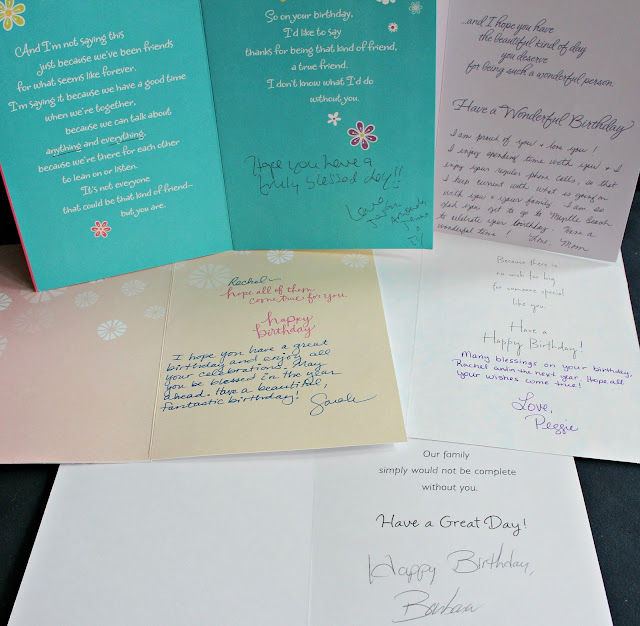 (And I'm not saying this
just because we've been friends
for what seems like forever.
I'm saying it because we have a good time
when we're together,
because we can talk about
anything and everything.
because we're there for each other
to lean on or listen.
It's not everyone
that could be that kind of friend—
but you are.
So on your birthday,
I'd like to say
thanks for being that kind of friend,
a true friend.
I don't know what I'd do
without you.
Hope you have a
truly blessed day!!
Love,
...and I hope you have
the beautiful kind of day
you deserve
for being such a wonderful person.
Have a Wonderful Birthday
I am proud of you & love you!
I enjoy spending time with you & I
enjoy your regular phone calls, so that
I keep current with what is going on
with you & your family. I am so
glad you get to go to Myrtle Beach
to celebrate your birthday. Have a
wonderful time! Love, Mom
Rachel-
hope all of them
come true for you.
happy
birthday
I hope you have a great
birthday and enjoy all
your celebrations. May
you be blessed in the year
ahead. Have a beautiful,
fantastic birthday!
Sarah
Because there is
no wish too big
for someone special
like you.
Have a
Happy Birthday!
Many blessings on your birthday,
Rachel and in the next year. Hope all
your wishes come true!
Love,
Peggie
Our family
simply would not be complete
without you.
Have a Great Day!
Happy Birthday,
Barbara